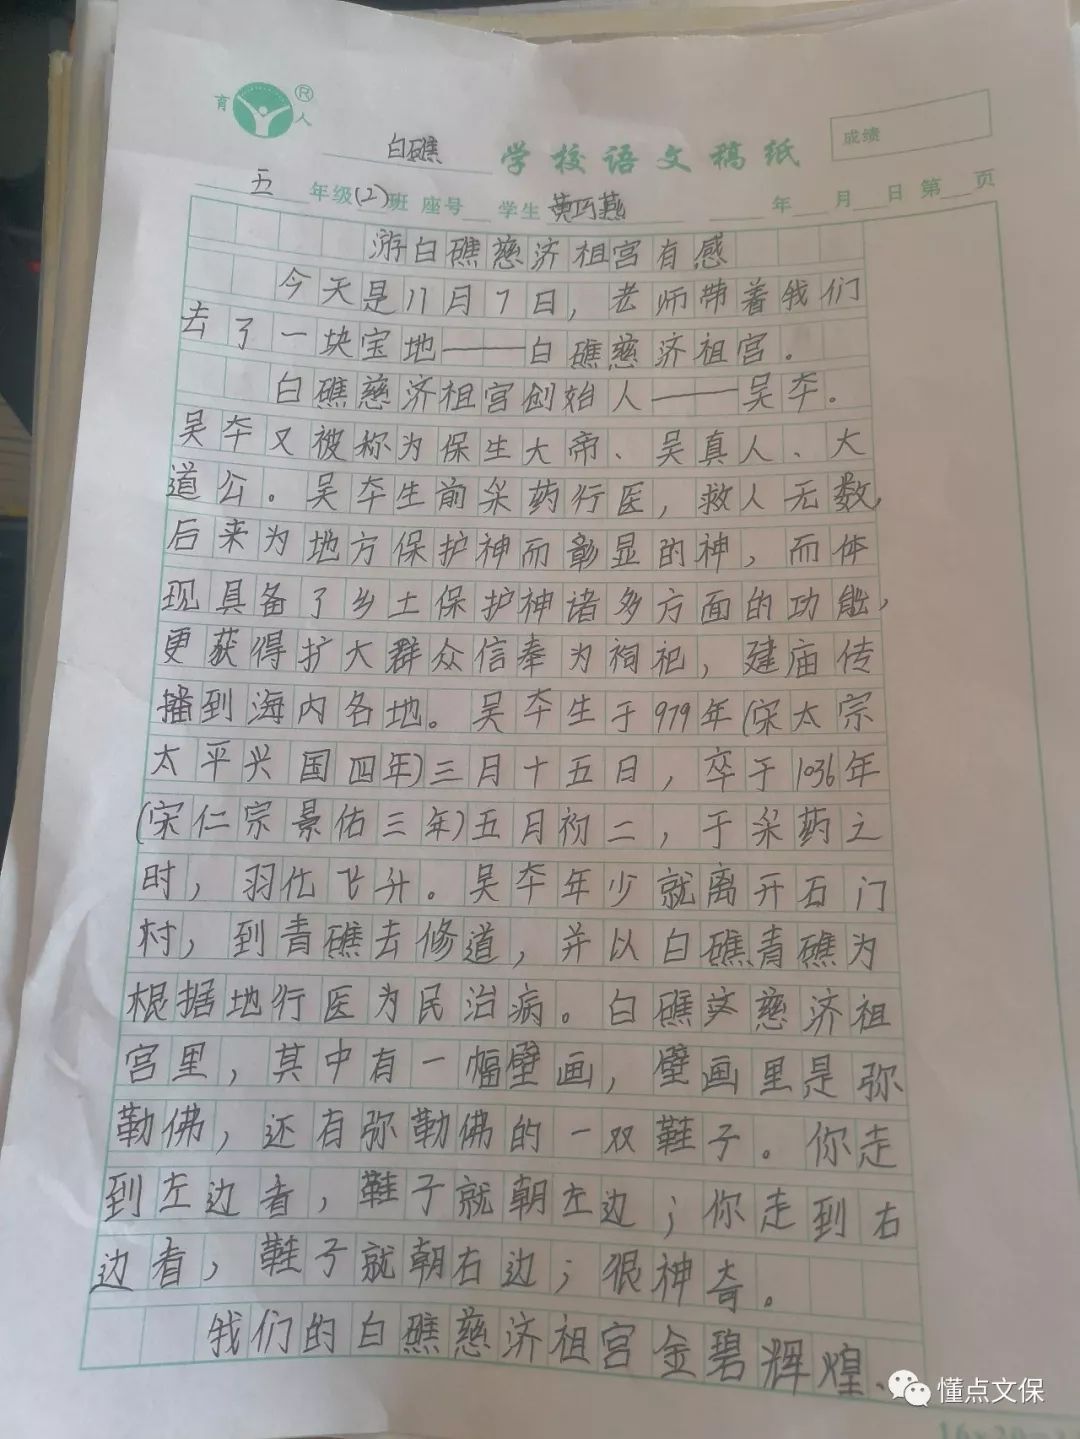 育 人 ®
白礁 学校语文稿纸 成绩
五 年级(2)班 座号 学生 黄巧燕 年 月 日 第 页
游白礁慈济祖宫有感
今天是11月7日，老师带着我们
去了一块宝地——白礁慈济祖宫。
白礁慈济祖宫创始人——吴夲。
吴夲又被称为保生大帝、吴真人、大
道公。吴夲生前采药行医，救人无数，
后来为地方保护神而彰显的神，而体
现具备了乡土保护神诸多方面的功能，
更获得扩大群众信奉为祠祀，建庙传
播到海内各地。吴夲生于979年(宋太宗
太平兴国四年)三月十五日，卒于1036年
(宋仁宗景佑三年)五月初二，于采药之
时，羽化飞升。吴夲年少就离开石门
村，到青礁去修道，并以白礁青礁为
根据地行医为民治病。白礁慈济祖
宫里，其中有一幅壁画，壁画里是弥
勒佛，还有弥勒佛的一双鞋子。你走
到左边看，鞋子就朝左边；你走到右
边看，鞋子就朝右边；很神奇。
我们的白礁慈济祖宫金碧辉煌、
懂点文保